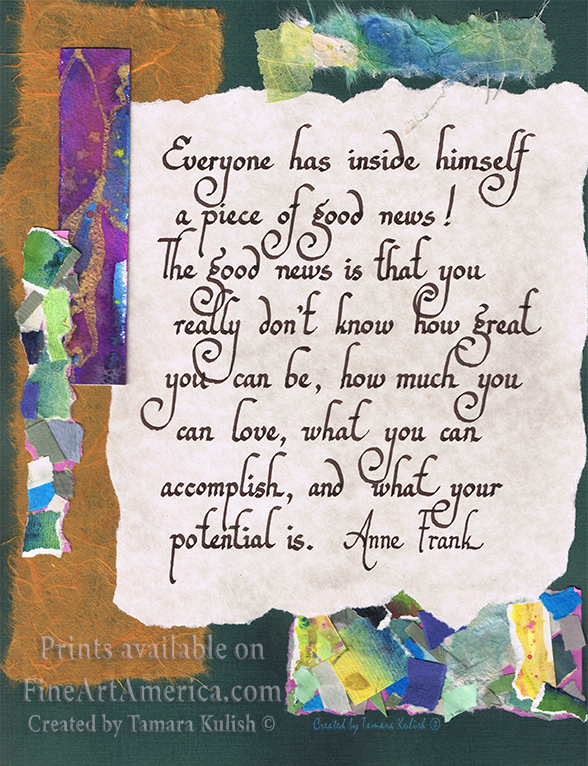 Everyone has inside himself
a piece of good news!
The good news is that you
really don't know how great
you can be, how much you
can love, what you can
accomplish, and what your
potential is. Anne Frank
Prints available on
FineArtAmerica.com
Created by Tamara Kulish ©
Created by Tamara Kulish ©